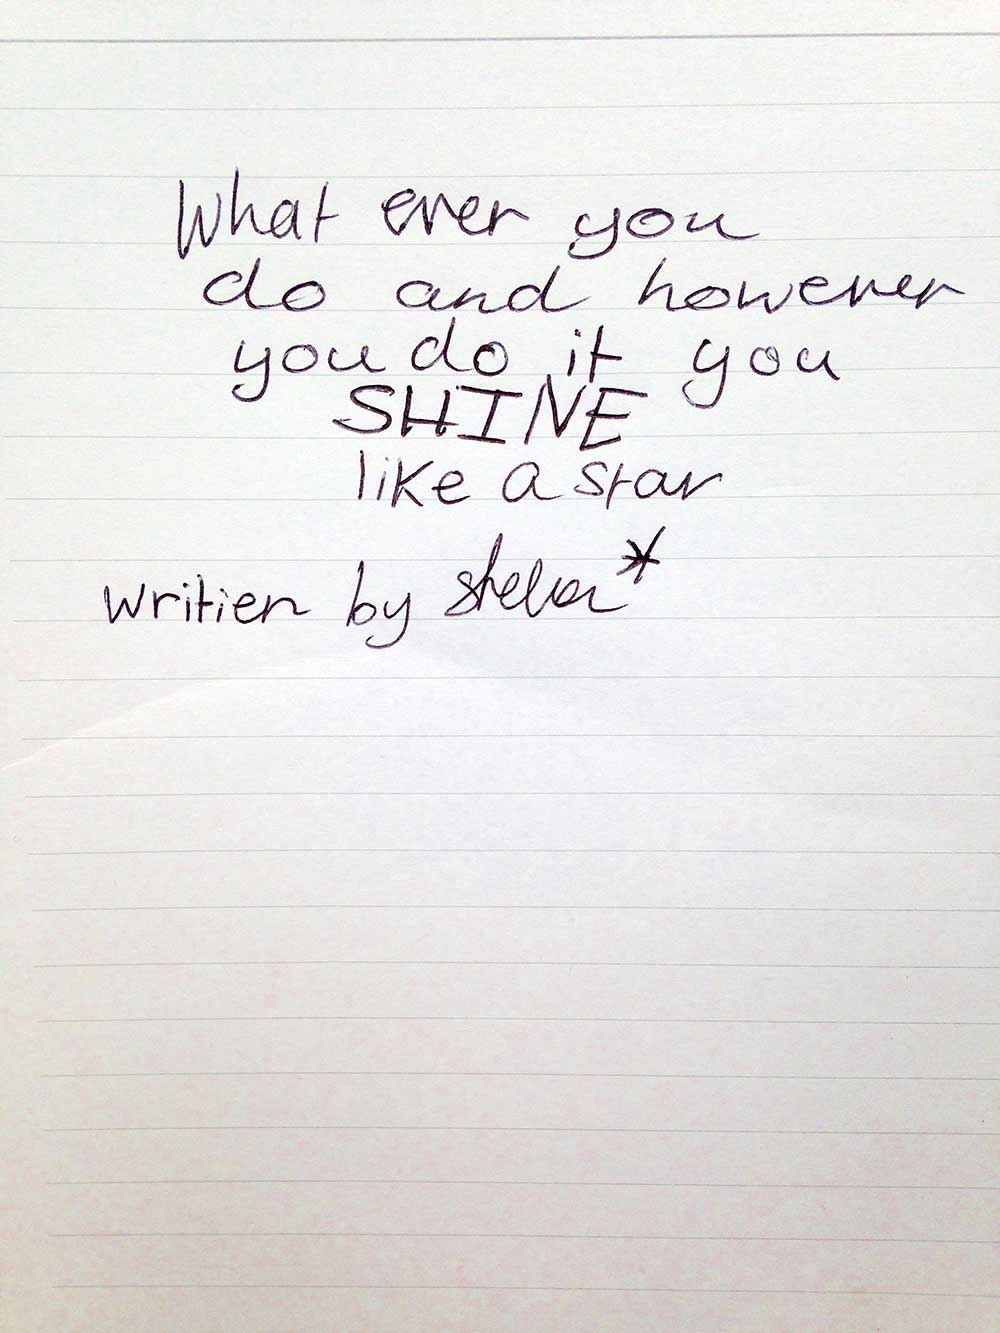 What ever you
do and however
you do it you
SHINE
like a star
written by